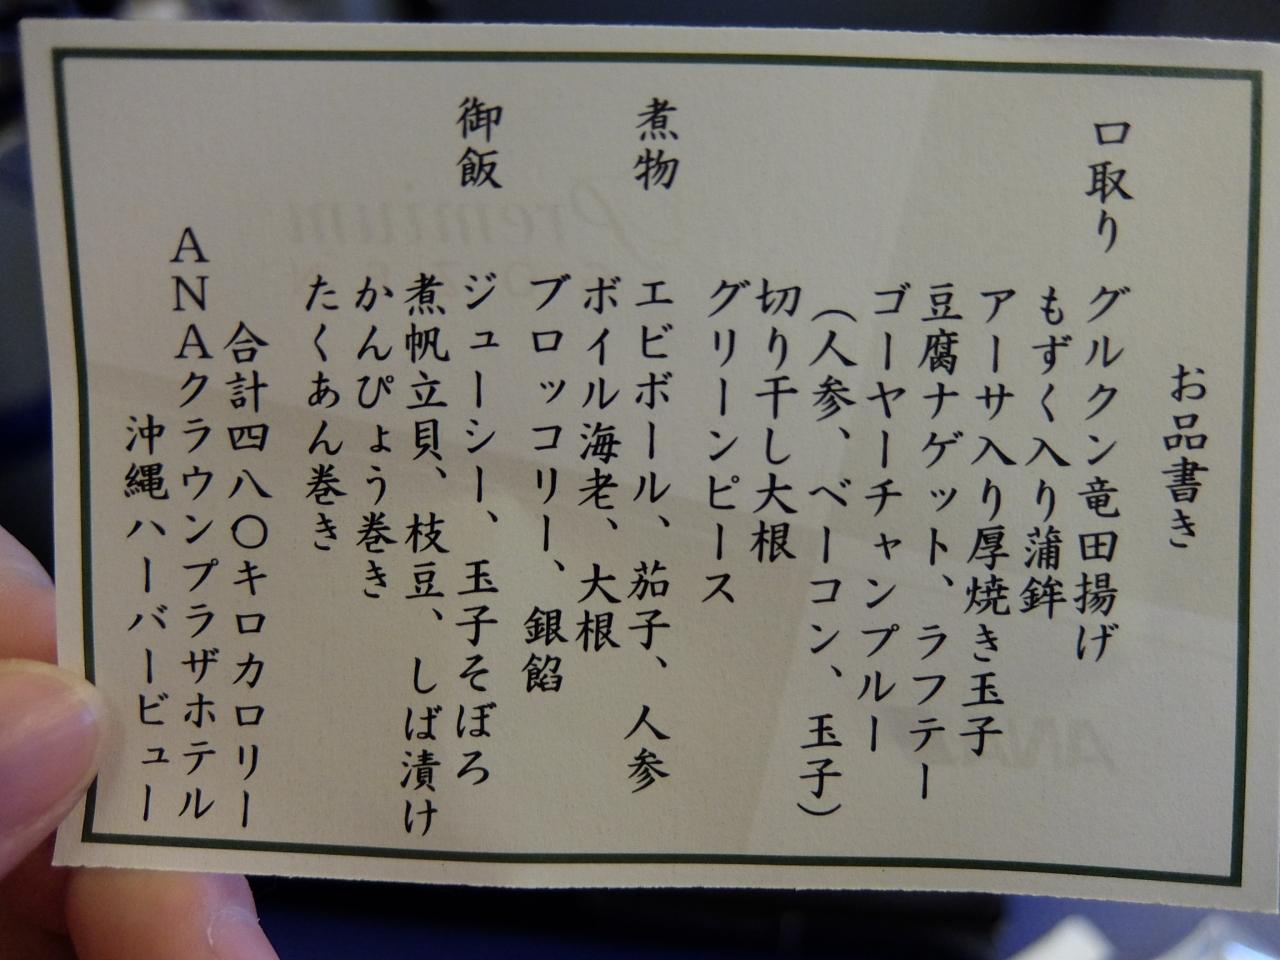 お品書き
口取り グルクン竜田揚げ
もずく入り蒲鉾
アーサ入り厚焼き玉子
豆腐ナゲット、ラフテー
ゴーヤーチャンプルー
（人参、ベーコン、玉子）
切り干し大根
グリーンピース
煮物 エビボール、茄子、人参
ボイル海老、大根
ブロッコリー、銀餡
御飯 ジューシー、玉子そぼろ
煮帆立貝、枝豆、しば漬け
かんぴょう巻き
たくあん巻き
合計四八〇キロカロリー
ANAクラウンプラザホテル
沖縄ハーバービュー
Premium
ANA